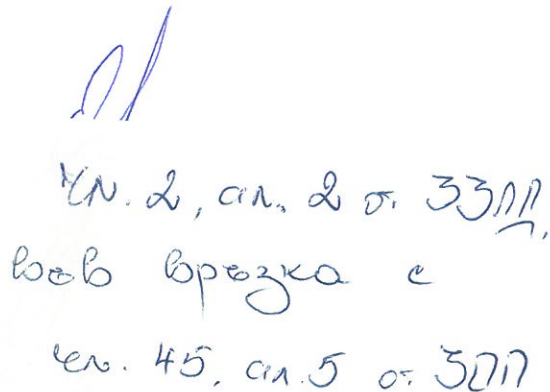 чл. 2, ал. 2 от ЗЗЛД,
във връзка с
чл. 45, ал. 5 от ЗОП